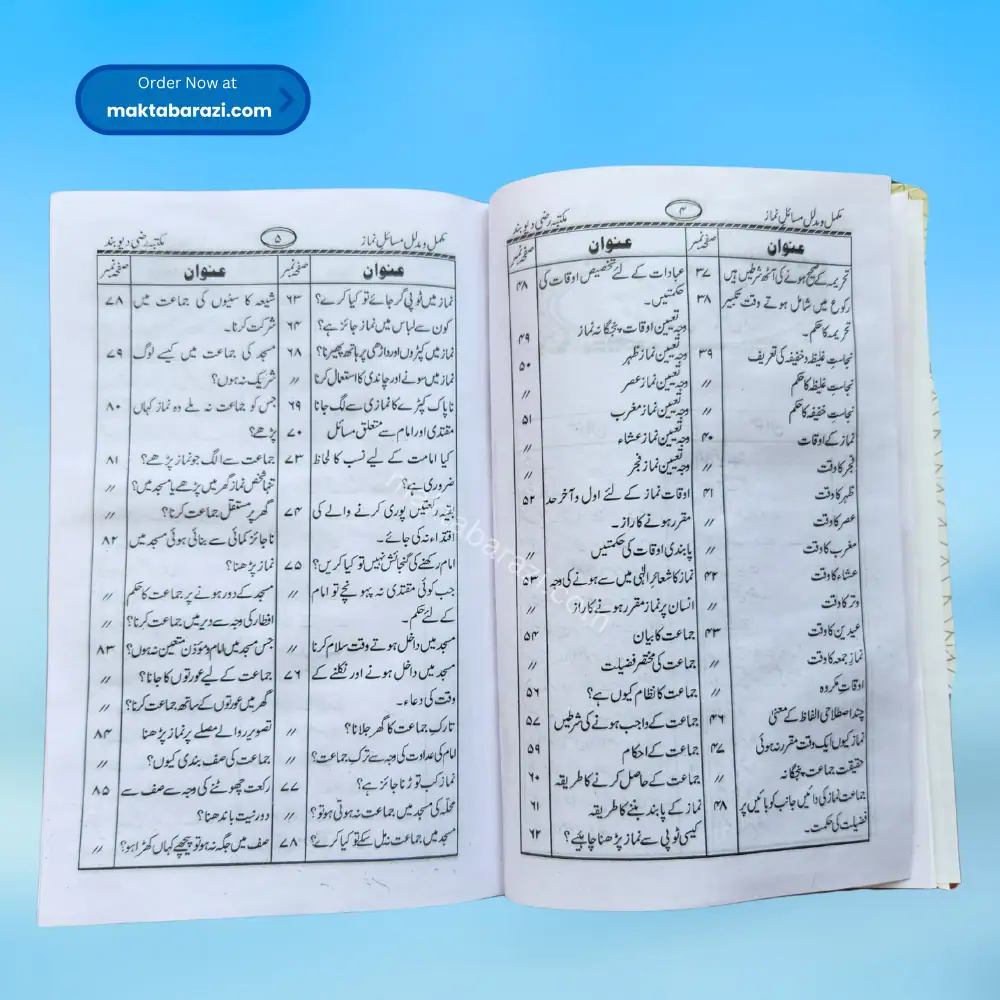 Order Now at
maktabarazi.com
مکمل ومدلل مسائل نماز
۴
مکتبہ رضی دیوبند
عنوان
صفحہ نمبر
تحریمہ کے صحیح ہونے کی آٹھ شرطیں ہیں ۳۷
رکوع میں شامل ہوتے وقت تکبیر ۳۸
تحریمہ کا حکم۔
نجاستِ غلیظہ وخفیفہ کی تعریف ۳۹
نجاستِ غلیظہ کا حکم 〃
نجاستِ خفیفہ کا حکم 〃
نماز کے اوقات ۴۰
فجر کا وقت 〃
ظہر کا وقت ۴۱
عصر کا وقت 〃
مغرب کا وقت 〃
عشاء کا وقت ۴۲
وتر کا وقت 〃
عیدین کا وقت ۴۳
نماز جمعہ کا وقت 〃
اوقاتِ مکروہ 〃
چند اصطلاحی الفاظ کے معنی ۴۶
نماز کیوں ایک وقت مقرر نہ ہوئی ۴۷
حقیقت جماعت پنجگانہ 〃
جماعت نماز کی دائیں جانب کو بائیں پر ۴۸
فضیلت کی حکمت۔
عنوان
صفحہ نمبر
عبادات کے لئے تخصیص اوقات کی ۴۸
حکمتیں۔
وجہ تعیین اوقات پنجگانہ نماز ۴۹
وجہ تعیین نماز ظہر ۵۰
وجہ تعیین نماز عصر 〃
وجہ تعیین نماز مغرب ۵۱
وجہ تعیین نماز عشاء 〃
وجہ تعیین نماز فجر 〃
اوقات نماز کے لئے اول وآخر حد ۵۲
مقرر ہونے کا راز۔
پابندی اوقات کی حکمتیں 〃
نماز کا شعائر الٰہی میں سے ہونے کی وجہ ۵۳
انسان پر نماز مقرر ہونے کا راز 〃
جماعت کا بیان ۵۴
جماعت کی مختصر فضیلت 〃
جماعت کا نظام کیوں ہے؟ ۵۶
جماعت کے واجب ہونے کی شرطیں ۵۷
جماعت کے احکام ۵۹
جماعت کے حاصل کرنے کا طریقہ ۶۰
نماز کے پابند بننے کا طریقہ ۶۱
کیسی ٹوپی سے نماز پڑھنا چاہیے؟ ۶۲
مکمل ومدلل مسائل نماز
۵
مکتبہ رضی دیوبند
عنوان
صفحہ نمبر
نماز میں ٹوپی گر جائے تو کیا کرے؟ ۶۳
کون سے لباس میں نماز جائز ہے؟ ۶۴
نماز میں کپڑوں اور داڑھی پر ہاتھ پھیرنا؟ ۶۸
نماز میں سونے اور چاندی کا استعمال کرنا 〃
ناپاک کپڑے کا نمازی سے لگ جانا ۶۹
مقتدی اور امام سے متعلق مسائل ۷۰
کیا امامت کے لیے نسب کا لحاظ ۷۳
ضروری ہے؟
بقیہ رکعتیں پوری کرنے والے کی ۷۴
اقتداء نہ کی جائے۔
امام رکھنے کی گنجائش نہیں تو کیا کریں؟ ۷۵
جب کوئی مقتدی نہ پہونچے تو امام 〃
کے لئے حکم۔
مسجد میں داخل ہوتے وقت سلام کرنا 〃
مسجد میں داخل ہونے اور نکلنے کے ۷۶
وقت کی دعاء۔
تارک جماعت کا گھر جلانا؟ 〃
امام کی عداوت کی وجہ سے ترک جماعت؟ 〃
نماز کب توڑنا جائز ہے؟ ۷۷
محلہ کی مسجد میں جماعت نہ ہوتی ہو تو؟ 〃
مسجد میں جماعت نہ مل سکے تو کیا کرے؟ ۷۸
عنوان
صفحہ نمبر
شیعہ کا سنیوں کی جماعت میں ۷۸
شرکت کرنا۔
مسجد کی جماعت میں کیسے لوگ ۷۹
شریک نہ ہوں؟
جس کو جماعت نہ ملے وہ نماز کہاں ۸۰
پڑھے؟
جماعت سے الگ جو نماز پڑھے؟ ۸۱
تنہا شخص نماز گھر میں پڑھے یا مسجد میں؟ 〃
گھر پر مستقل جماعت کرنا؟ 〃
ناجائز کمائی سے بنائی ہوئی مسجد میں ۸۲
نماز پڑھنا؟
مسجد کے دور ہونے پر جماعت کا حکم 〃
افطار کی وجہ سے دیر میں جماعت کرنا؟ 〃
جس مسجد میں امام ومؤذن متعین نہ ہوں؟ ۸۳
جماعت کے لیے عورتوں کا جانا؟ 〃
گھر میں عورتوں کے ساتھ جماعت کرنا؟ 〃
تصویر والے مصلے پر نماز پڑھنا ۸۴
جماعت کی صف بندی کیوں؟ 〃
رکعت چھوٹنے کی وجہ سے صف سے ۸۵
دور نیت باندھنا؟
صف میں جگہ نہ ہو تو پیچھے کہاں کھڑا ہو؟ 〃
maktabarazi.com